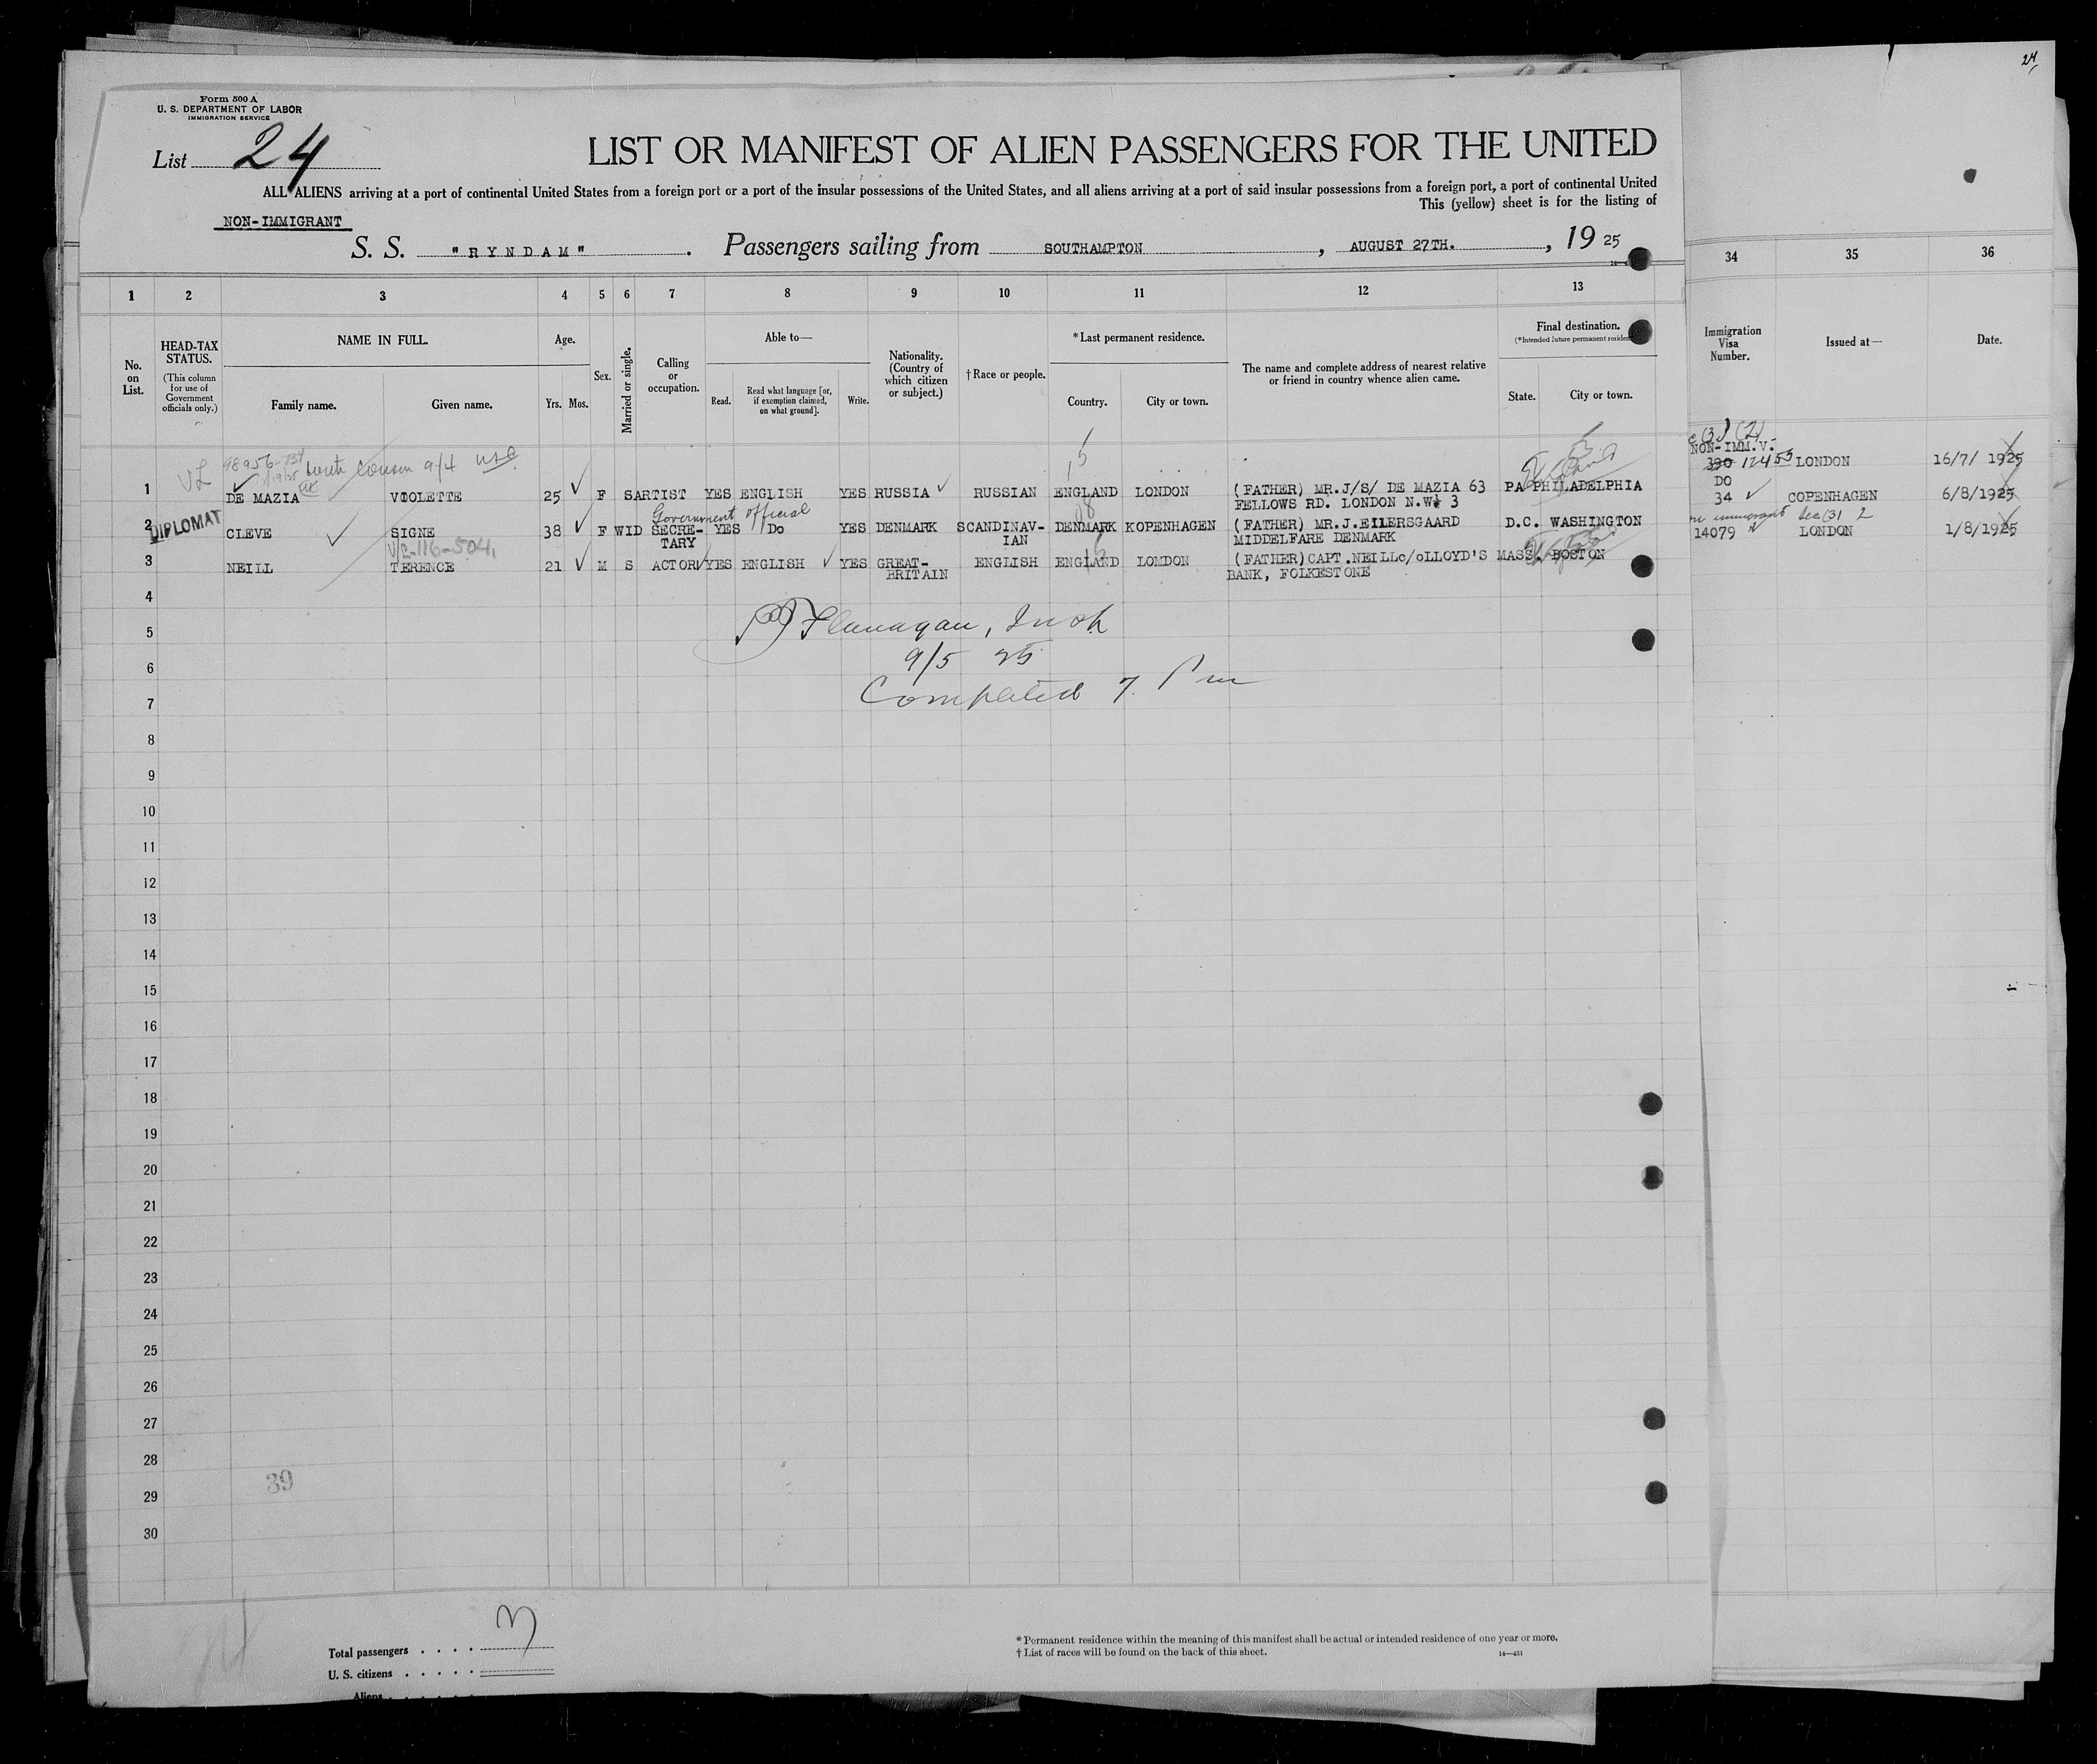 24
Form 500 A
U. S. DEPARTMENT OF LABOR
IMMIGRATION SERVICE
List 24
LIST OR MANIFEST OF ALIEN PASSENGERS FOR THE UNITED
ALL ALIENS arriving at a port of continental United States from a foreign port or a port of the insular possessions of the United States, and all aliens arriving at a port of said insular possessions from a foreign port, a port of continental United
This (yellow) sheet is for the listing of
NON-IMMIGRANT
S. S. "RYNDAM". Passengers sailing from SOUTHAMPTON, AUGUST 27TH., 1925
1 2 3 4 5 6 7 8 9 10 11 12 13 34 35 36
No. on List.
HEAD-TAX STATUS.
(This column for use of Government officials only.)
NAME IN FULL.
Family name. Given name.
Age.
Yrs. Mos.
Sex.
Married or single.
Calling or occupation.
Able to—
Read. Read what language [or, if exemption claimed, on what ground]. Write.
Nationality. (Country of which citizen or subject.)
†Race or people.
*Last permanent residence.
Country. City or town.
The name and complete address of nearest relative or friend in country whence alien came.
Final destination.
(*Intended future permanent residen
State. City or town.
Immigration Visa Number.
Issued at—
Date.
98956-734 with cousin 9/4 USC
NON-IMM.V.
390 12453 LONDON 16/7/ 1925
1 DE MAZIA VIOLETTE 25 F S ARTIST YES ENGLISH YES RUSSIA RUSSIAN ENGLAND LONDON (FATHER) MR.J/S/ DE MAZIA 63 PA PHILADELPHIA
FELLOWS RD. LONDON N.W. 3
DO
34 COPENHAGEN 6/8/1925
Government official
DIPLOMAT
2 CLEVE SIGNE 38 F WID SECRE- YES Do YES DENMARK SCANDINAV- DENMARK KOPENHAGEN (FATHER) MR.J.EILERSGAARD D.C. WASHINGTON
TARY IAN MIDDELFARE DENMARK
14079 LONDON 1/8/1925
V/L-116-504
3 NEILL TERENCE 21 M S ACTOR YES ENGLISH YES GREAT- ENGLISH ENGLAND LONDON (FATHER)CAPT.NEILLC/OLLOYD'S MASS. BOSTON
BRITAIN BANK, FOLKESTONE
4
5
Flanagan, Insp
6
9/5 25
7
Completed 7. Pm
8
9
10
11
12
13
14
15
16
17
18
19
20
21
22
23
24
25
26
27
28
39
29
30
Total passengers . . . . 3
U. S. citizens . . . . .
Aliens . . . . . .
* Permanent residence within the meaning of this manifest shall be actual or intended residence of one year or more.
† List of races will be found on the back of this sheet.
14—451